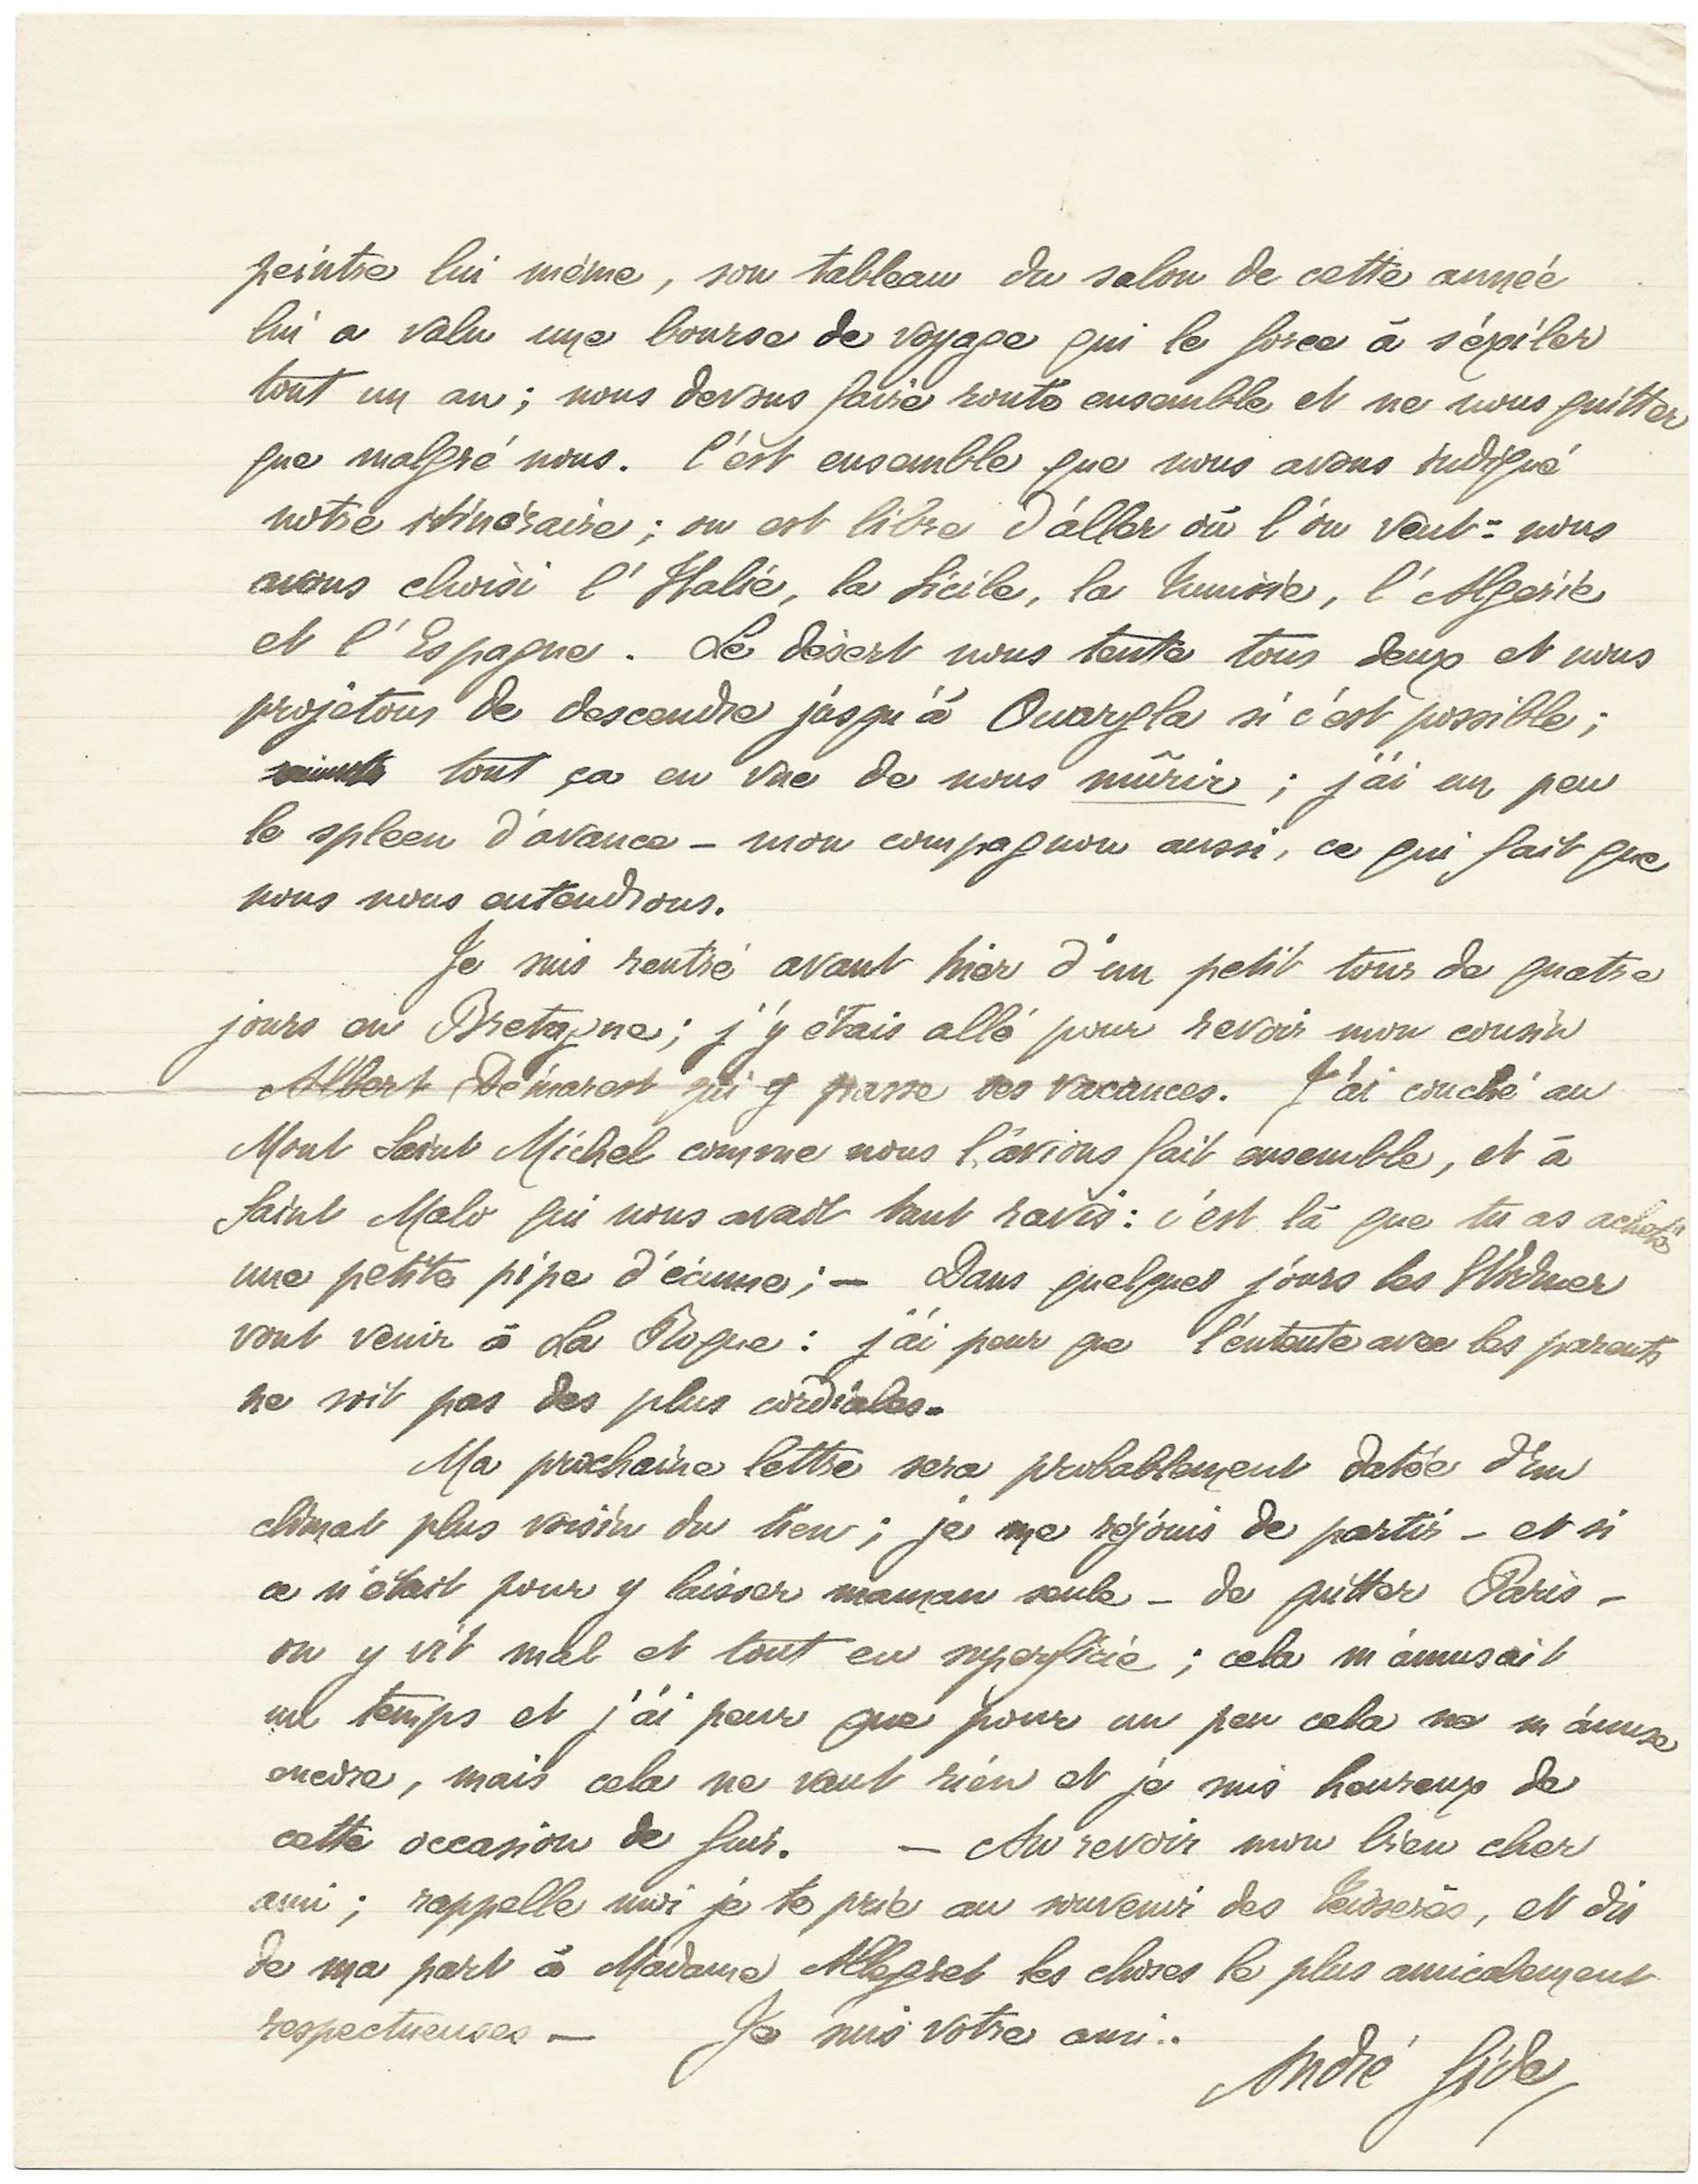 peintre lui même, son tableau du salon de cette année
lui a valu une bourse de voyage qui le force à s'exiler
tout un an ; nous devons faire route ensemble et ne nous quitter
que malgré nous. C'est ensemble que nous avons indiqué
notre itinéraire ; on est libre d'aller où l'on veut : nous
avons choisi l'Italie, la Sicile, la Tunisie, l'Algérie
et l'Espagne. Le désert nous tente tous deux et nous
projetons de descendre jusqu'à Ouargla si c'est possible ;
tout ça en vue de nous mûrir ; j'ai un peu
le spleen d'avance – mon compagnon aussi, ce qui fait que
nous nous entendrons.
Je suis rentré avant hier d'un petit tour de quatre
jours en Bretagne ; j'y étais allé pour revoir mon cousin
Albert Démarest qui y passe ses vacances. J'ai couché au
Mont Saint Michel comme nous l'avions fait ensemble, et à
Saint Malo qui nous avait tant ravis : c'est là que tu as acheté
une petite pipe d'écume ; — Dans quelques jours les Widmer
vont venir à La Roque : j'ai peur que l'entente avec les parents
ne soit pas des plus cordiales.
Ma prochaine lettre sera probablement datée d'un
climat plus voisin du tien ; je me réjouis de partir – et si
ce n'était pour y laisser maman seule – de quitter Paris –
on y vit mal et tout en superficie ; cela m'amusait
un temps et j'ai peur que pour un peu cela ne m'amuse
encore, mais cela ne vaut rien et je suis heureux de
cette occasion de fuir. — Au revoir mon bien cher
ami ; rappelle moi je te prie au souvenir des Teisserès, et dis
de ma part à Madame Allégret les choses le plus amicalement
respectueuses — Je suis votre ami..
André Gide